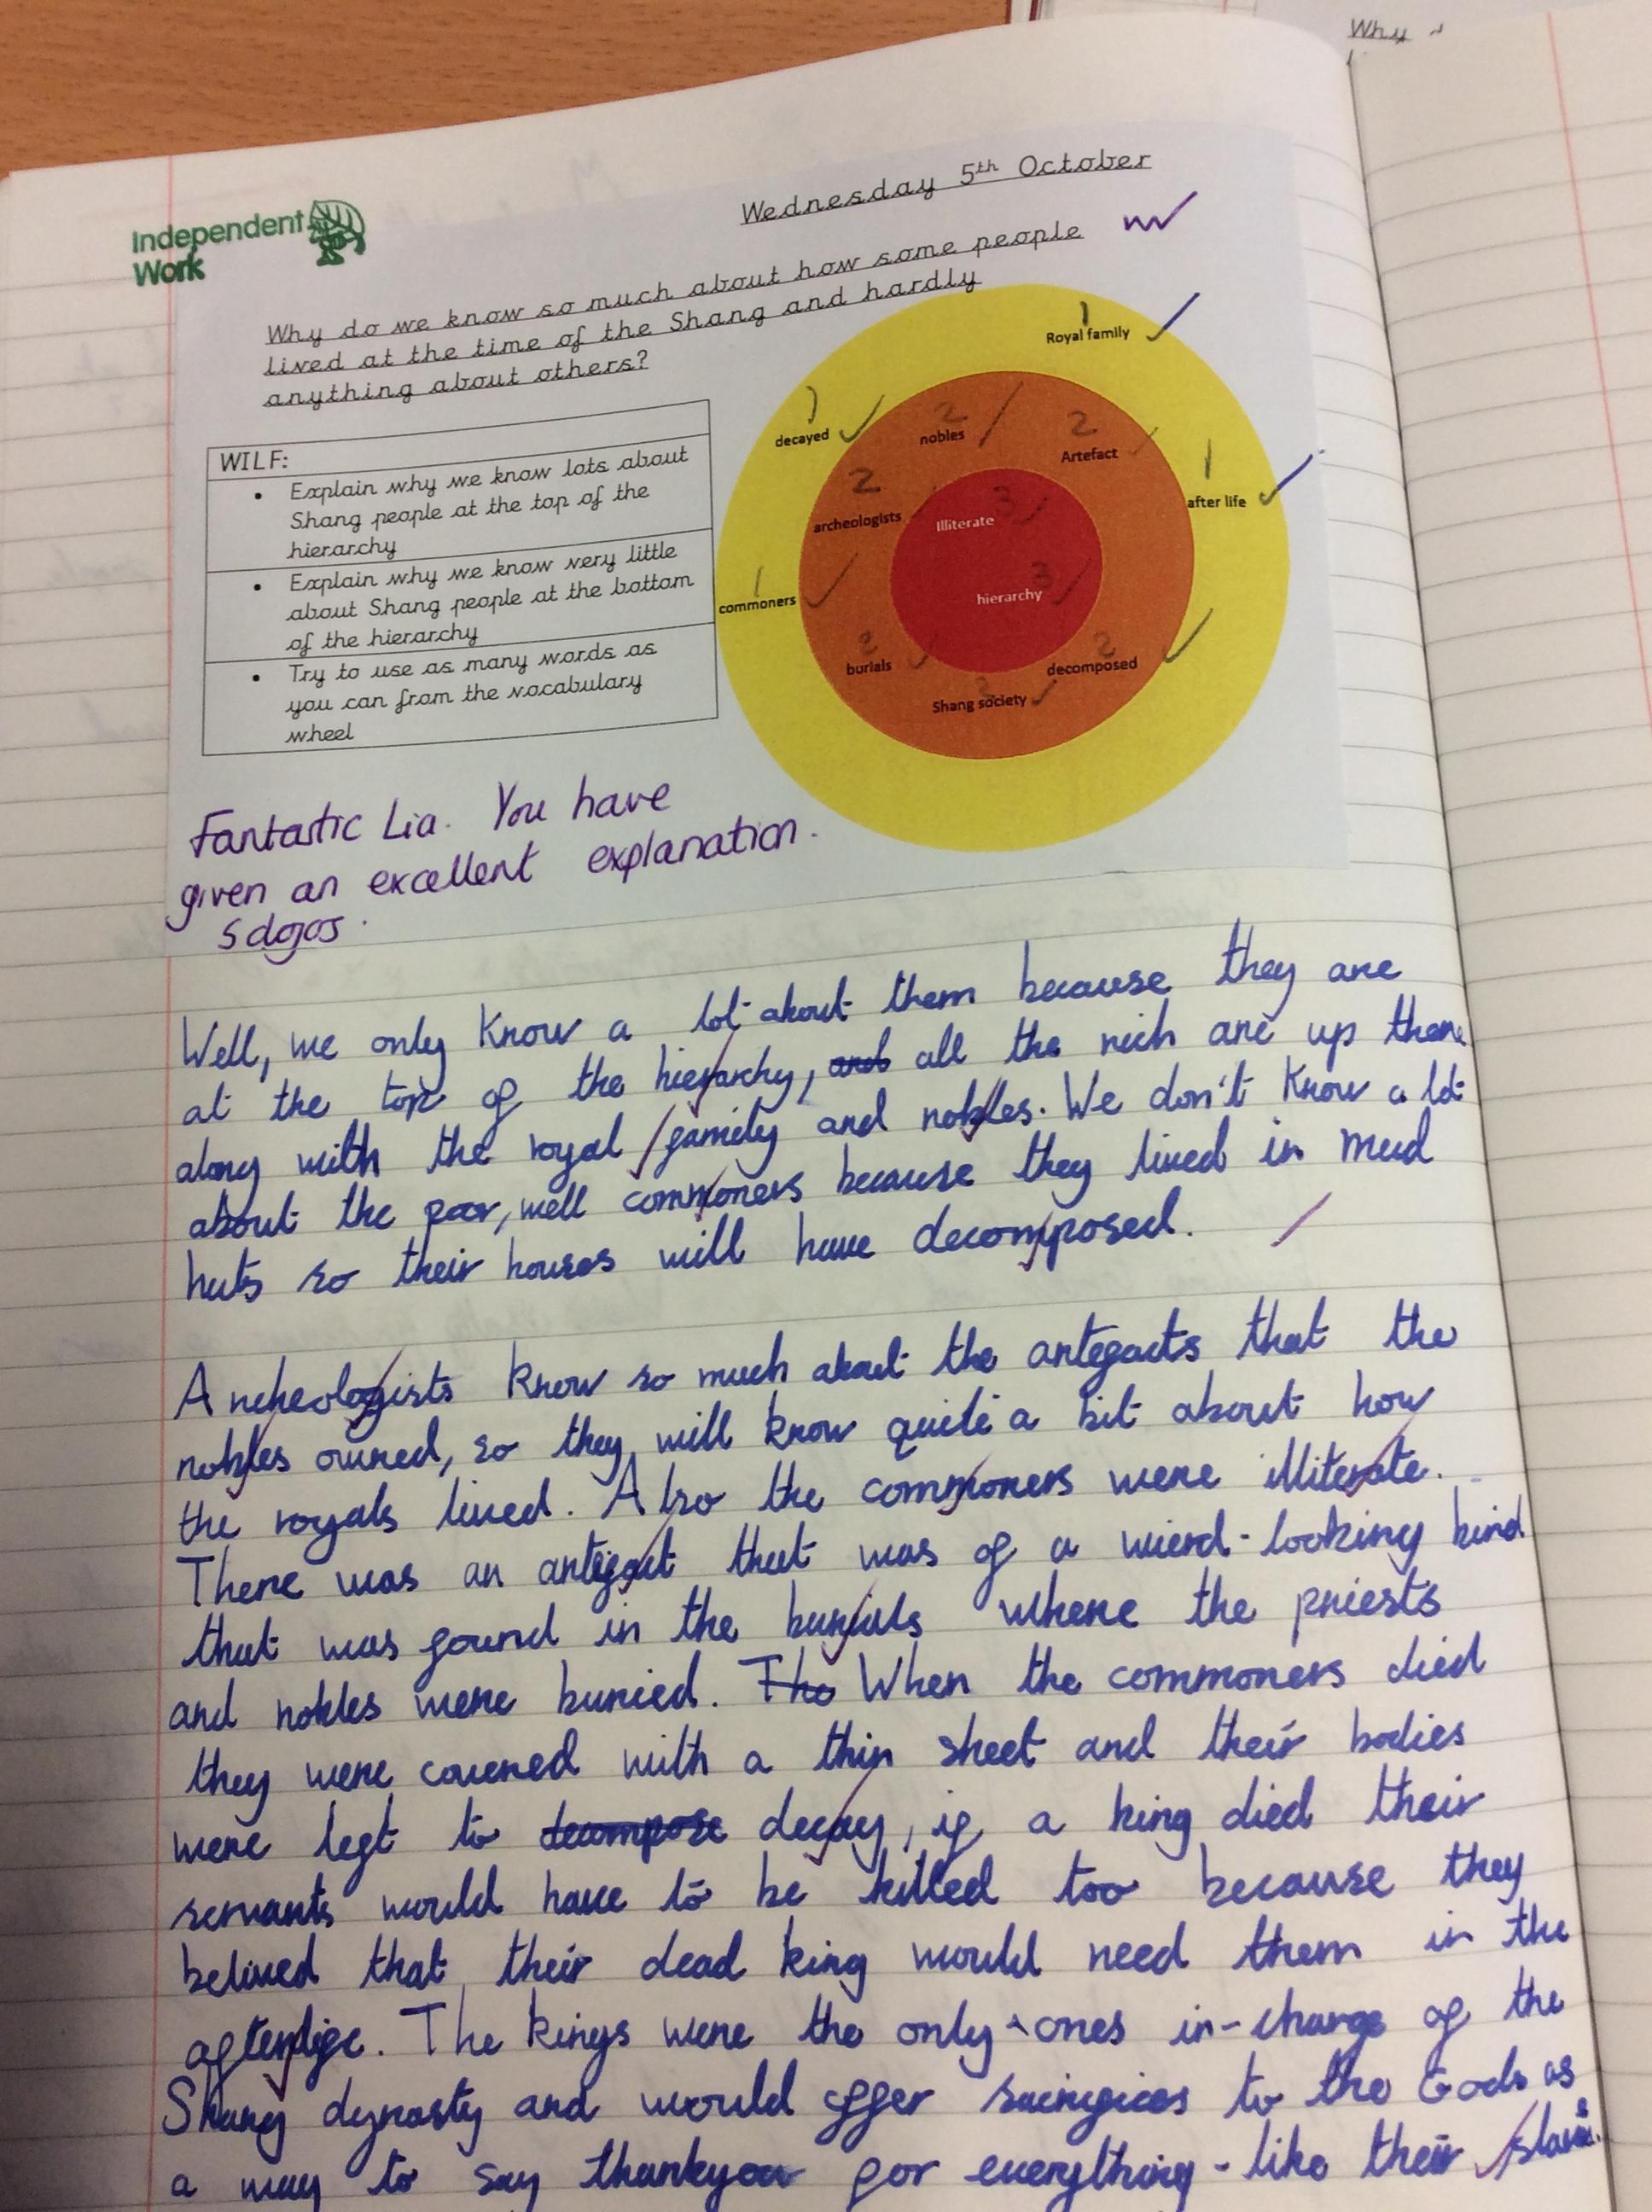 Why
Independent
Work
Wednesday 5th October
Why do we know so much about how some people
lived at the time of the Shang and hardly
anything about others?
WILF:
• Explain why we know lots about
Shang people at the top of the
hierarchy
• Explain why we know very little
about Shang people at the bottom
of the hierarchy
• Try to use as many words as
you can from the vocabulary
wheel
1
Royal family
1
decayed
2
nobles
2
Artefact
1
after life
2
archeologists
3
Illiterate
3
hierarchy
1
commoners
2
burials
2
decomposed
2
Shang society
Fantastic Lia. You have
given an excellent explanation.
5 dojos.
Well, we only know a lot about them because they are
at the top of the hierarchy, and all the rich are up there
along with the royal family and nobles. We don't know a lot
about the poor, well commoners because they lived in mud
huts so their houses will have decomposed.
Archeologists know so much about the artefacts that the
nobles owned, so they will know quite a bit about how
the royals lived. Also the commoners were illiterate.
There was an artefact that was of a wierd-looking kind
that was found in the burials where the priests
and nobles were buried. The When the commoners died
they were covered with a thin sheet and their bodies
were left to decompose decay, if a king died their
servants would have to be killed too because they
belived that their dead king would need them in the
afterlife. The kings were the only ones in-charge of the
Shang dynasty and would offer sacrifices to the Gods as
a way to say thankyou for everything - like their